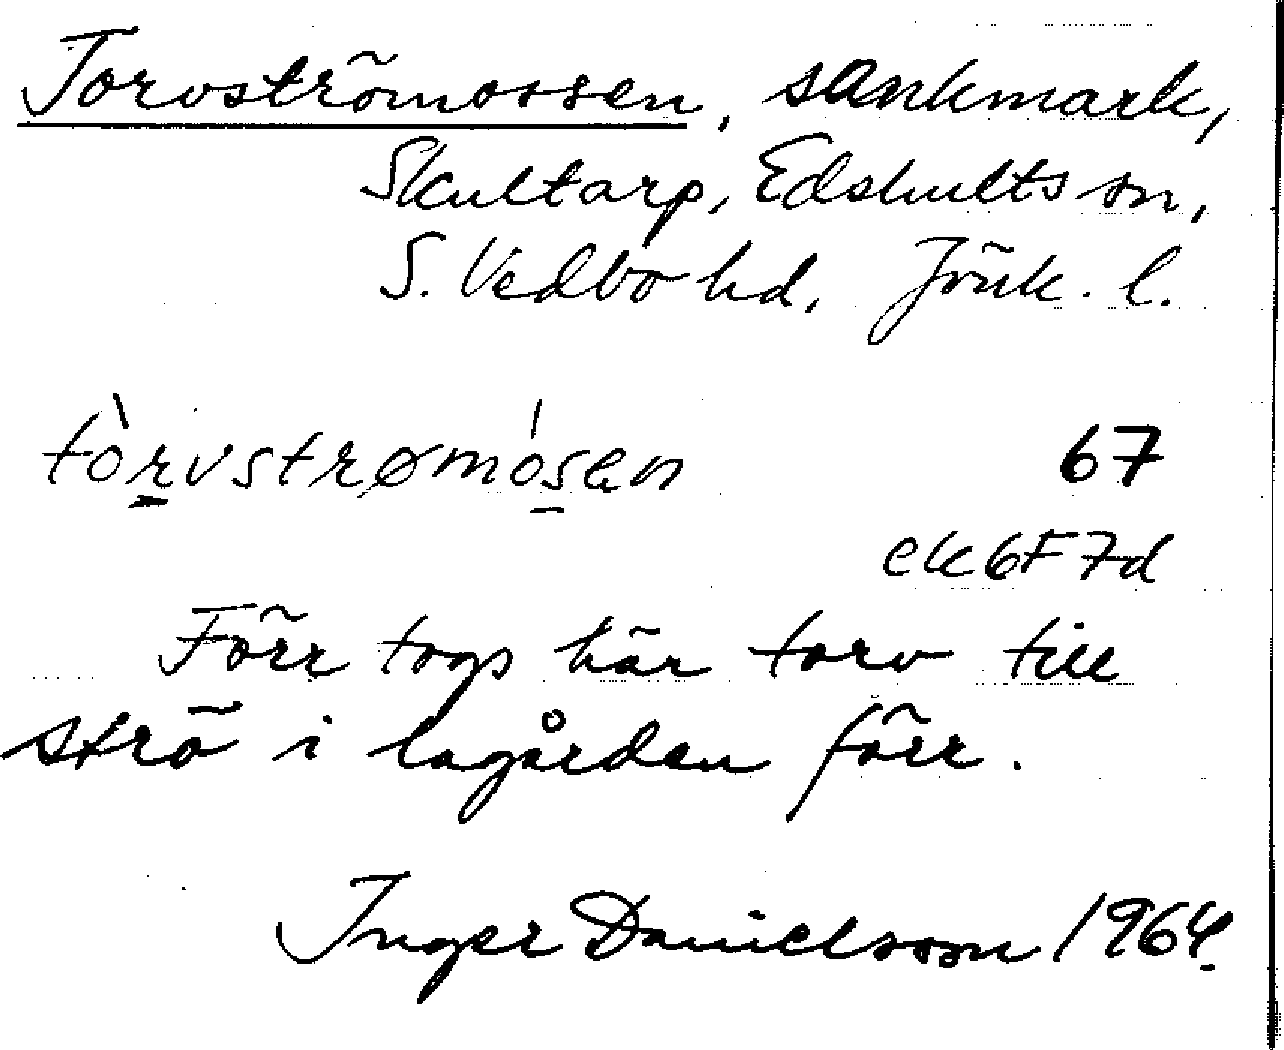 Torvströmossen, sankmark,
Skultarp, Edshults sn,
S. Vedbo hd, Jönk. l.
tòrvstrømósen
67
ek6F7d
Förr togs här torv till
strö i lagården förr.
Inger Danielsson 1964.